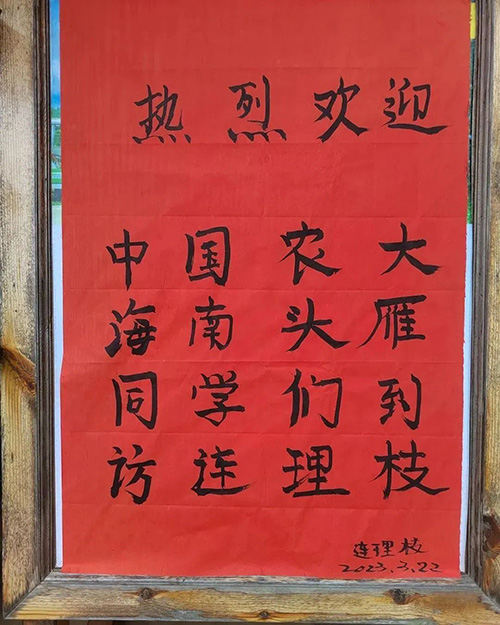 热烈欢迎
中国农大
海南头雁
同学们到
访连理枝
连理枝
2023.3.22